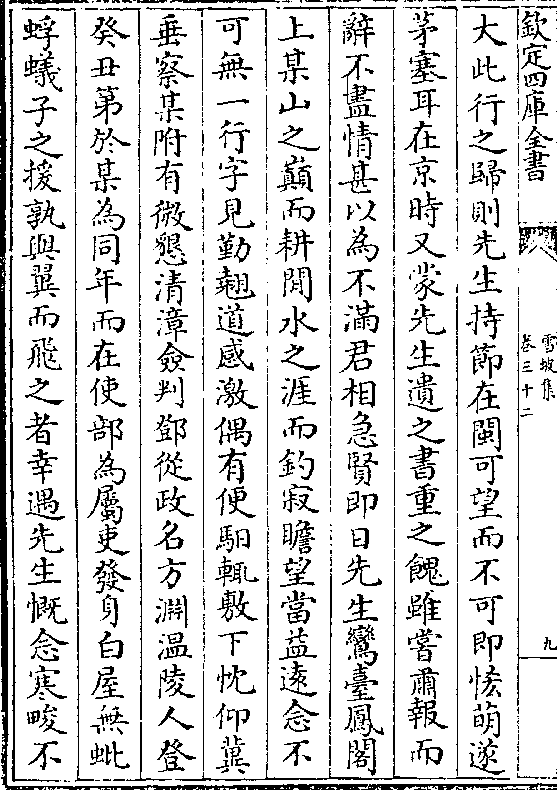 欽定四庫全書
雪坡集
卷三十二
九
大此行之歸則先生持節在閩可望而不可即恠萌遂
茅塞耳在京時又蒙先生遺之書重之餽雖嘗肅報而
辭不盡情甚以為不滿君相急賢即日先生鸞臺鳳閣
上某山之巔而耕閒水之涯而釣寂瞻望當益遠念不
可無一行字見勤翹道感激偶有便駟輒敷下忱仰冀
垂察某附有微懇清漳僉判鄧從政名方淵溫陵人登
癸丑第於某為同年而在使部為屬吏發身白屋無蚍
蜉蟻子之援孰與翼而飛之者幸遇先生慨念寒畯不